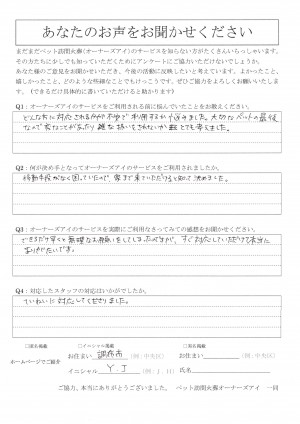 あなたのお声をお聞かせください
まだまだペット訪問火葬(オーナーズアイ)のサービスを知らない方がたくさんいらっしゃいます。
その方たちに少しでも知っていただくためにアンケートにご協力いただけないでしょうか。
あなた様のご意見をお聞かせいただき、今後の活動に反映したいと考えています。よかったこと、
嬉しかったこと、どのような些細なことでもけっこうです。ぜひご協力をよろしくお願いいたします。
(できるだけ具体的に書いていただけると助かります)
Q1:オーナーズアイのサービスをご利用される前に悩んでいたことをお教えください。
どんな方に対応されるのか不安で利用するか悩みました。大切なペットの最後
なので変なってがあったり 雑な扱いをされないか とても考えました。
Q2:何が決め手となってオーナーズアイのサービスをご利用されましたか。
移動手段がなく困っていたので、家まで来ていただけると知って決めました。
Q3:オーナーズアイのサービスを実際にご利用なさってみての感想をお聞かせください。
できるだけ早くと無理なお願いをしてしまったのですが、すぐ対応していただけて本当に
ありがたいです。
Q4:対応したスタッフの対応はいかがでしたか。
ていねいに対応してくださりました。
ホームページでご紹介
□イニシャル掲載
お住まい 調布市 (例:中央区)
イニシャル Y.J (例:J.H)
□匿名掲載
お住まい (例:中央区)
氏名
ご協力、本当にありがとうございました。 ペット訪問火葬オーナーズアイ 一同